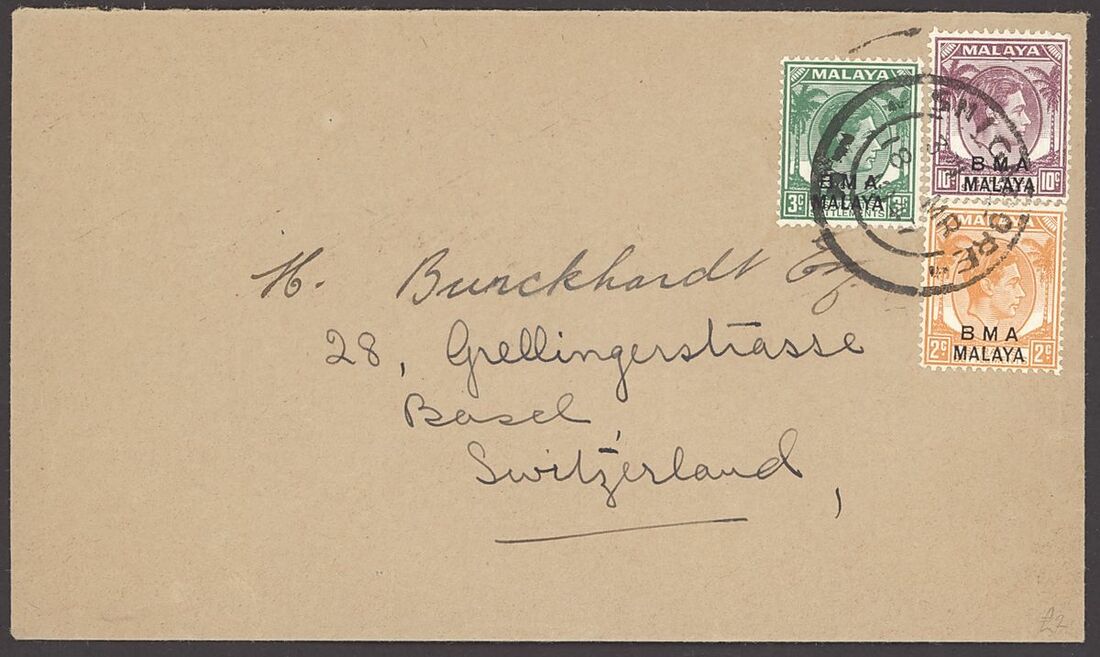 MALAYA
3C
B M A
MALAYA
SETTLEMENTS
3C
MALAYA
10C
B M A
MALAYA
10C
SINGAPORE
18 MR
MALAYA
2C
B M A
MALAYA
2C
H. Burckhardt Esq
28, Grellingerstrasse
Basel,
Switzerland,
£2